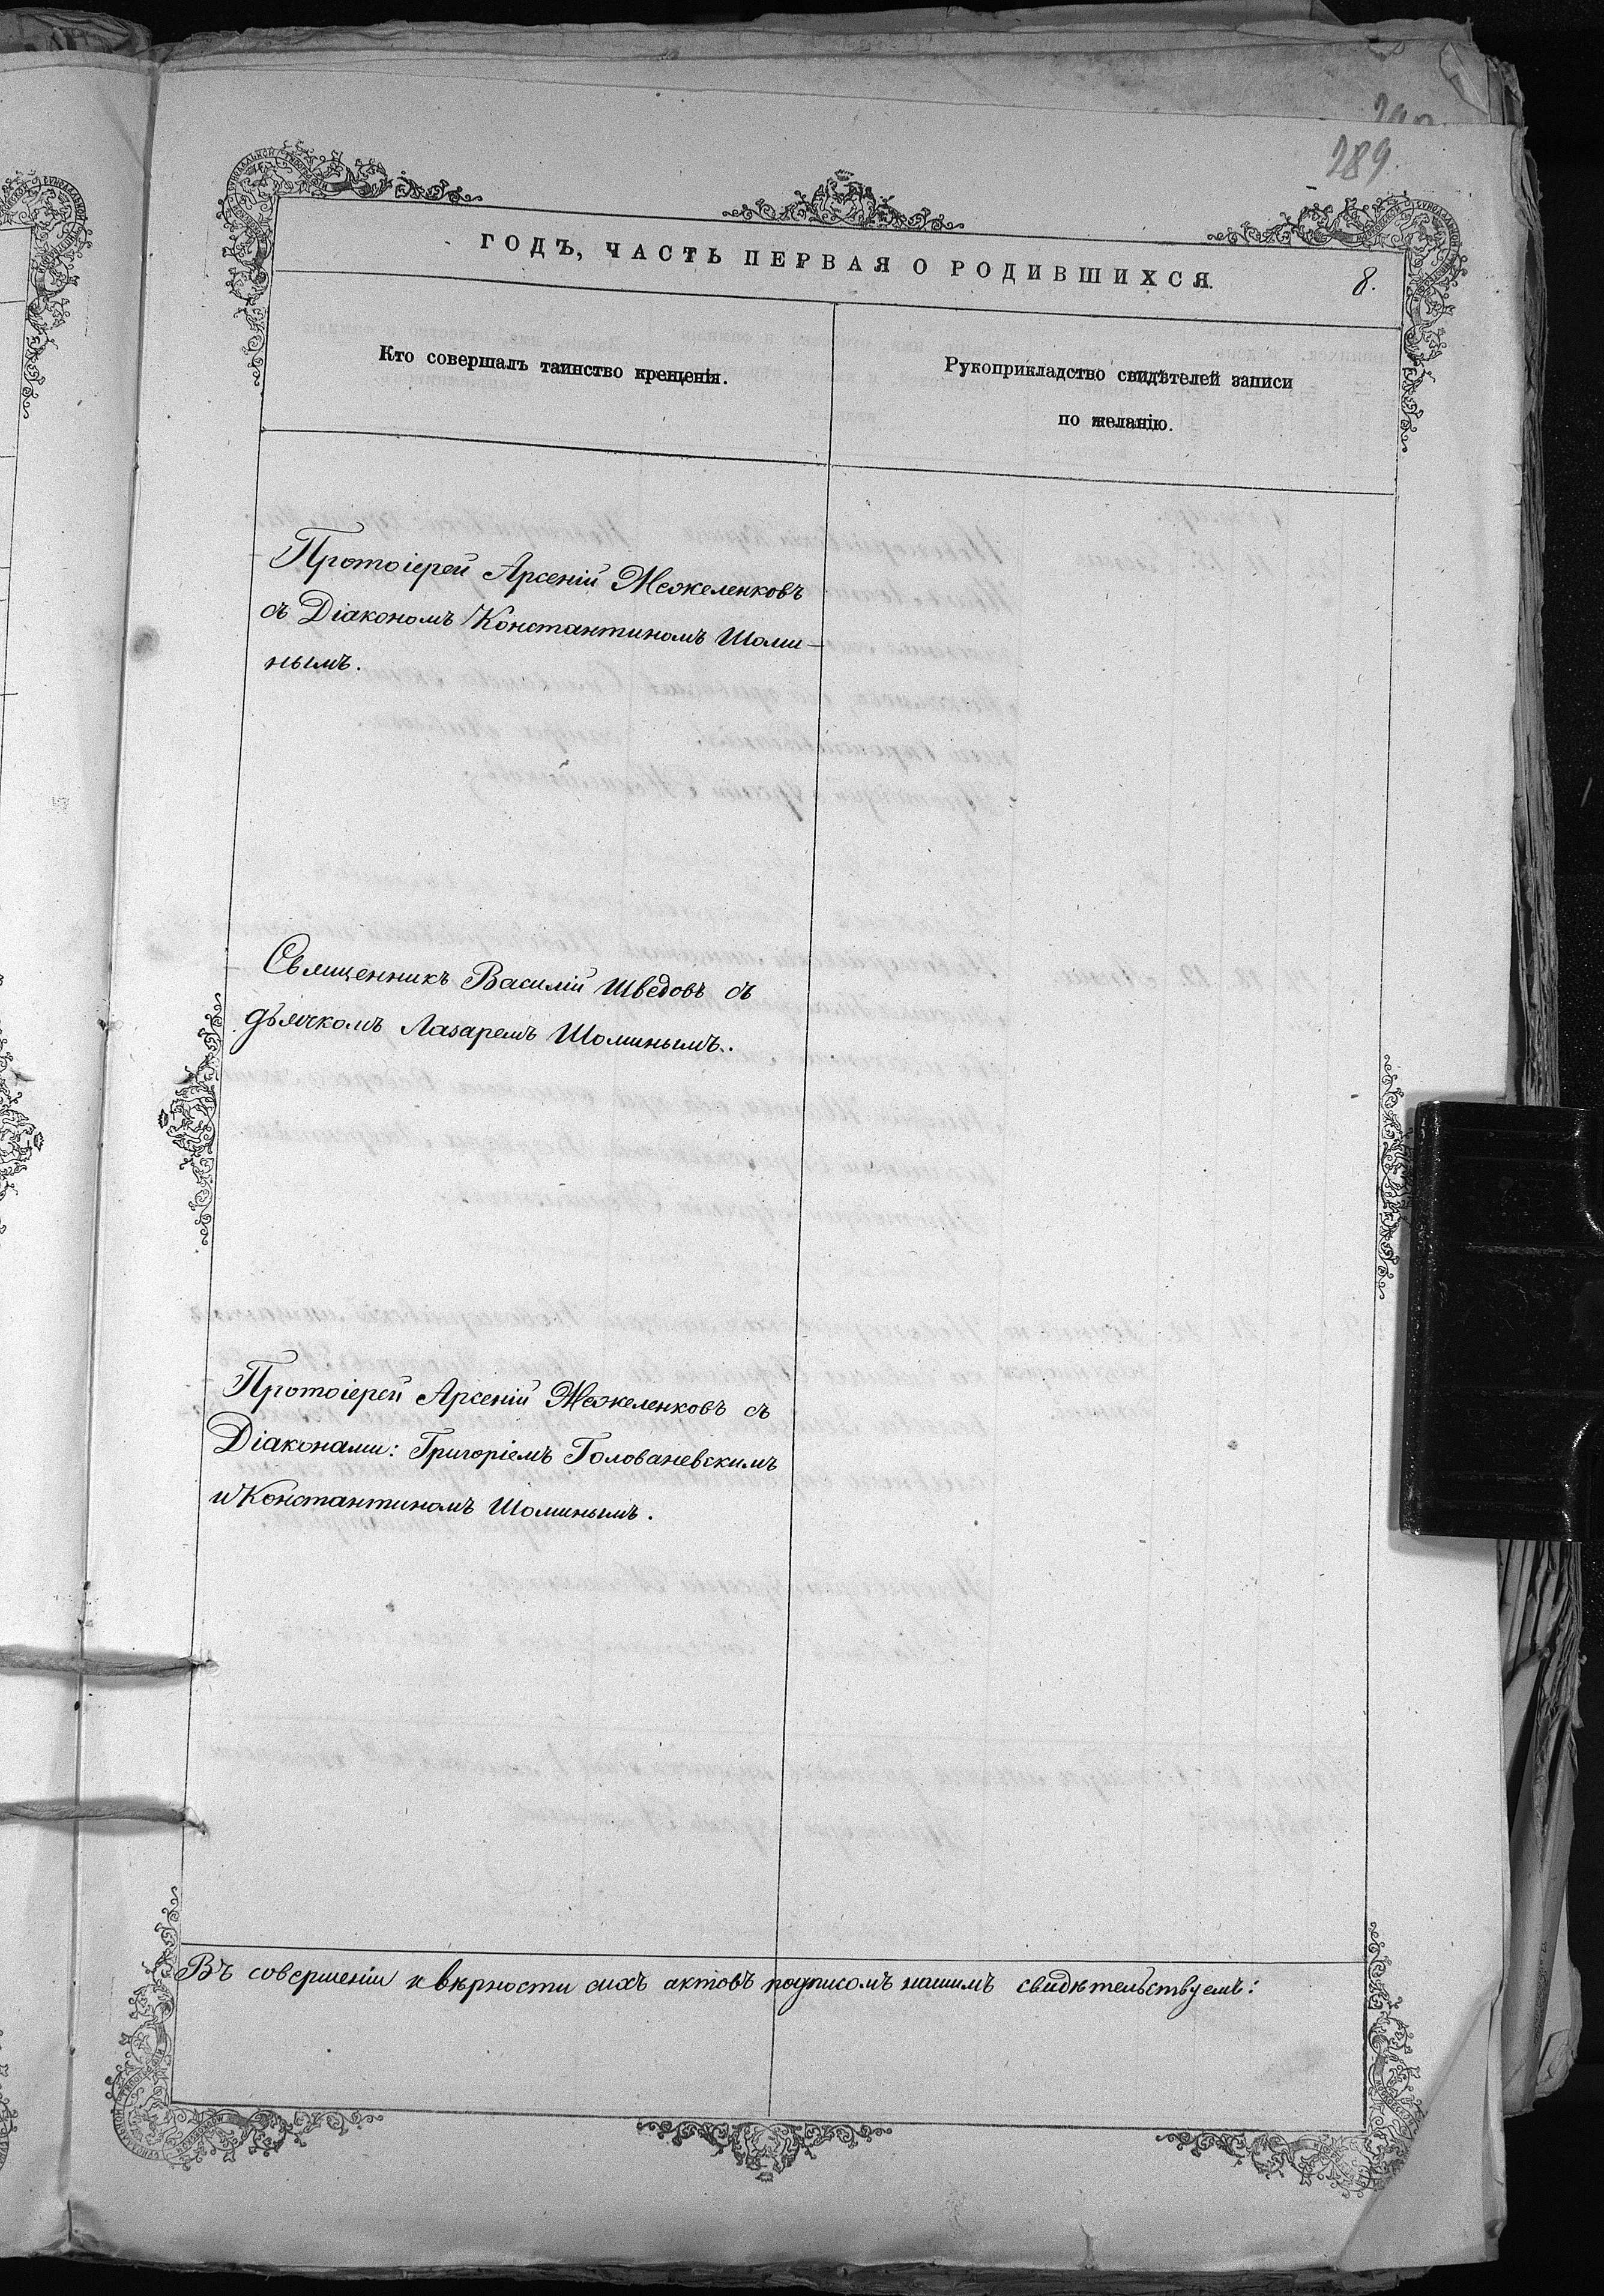 289.
ГОДЪ, ЧАСТЬ ПЕРВАЯ О РОДИВШИХСЯ.
8.
Кто совершалъ таинство крещенія.
Рукоприкладство свидѣтелей записи
по желанію.
Протоіерей Арсеній Межеленковъ
съ Діакономъ Константиномъ Шоми-
нымъ.
Священникъ Василій Шведовъ съ
дьячкомъ Лазаремъ Шоминымъ.
Протоіерей Арсеній Межеленковъ съ
Діаконами: Григоріемъ Голованевскимъ
и Константиномъ Шоминымъ.
Въ совершеніи и вѣрности сихъ актовъ подписомъ нашимъ свидѣтельствуемъ: